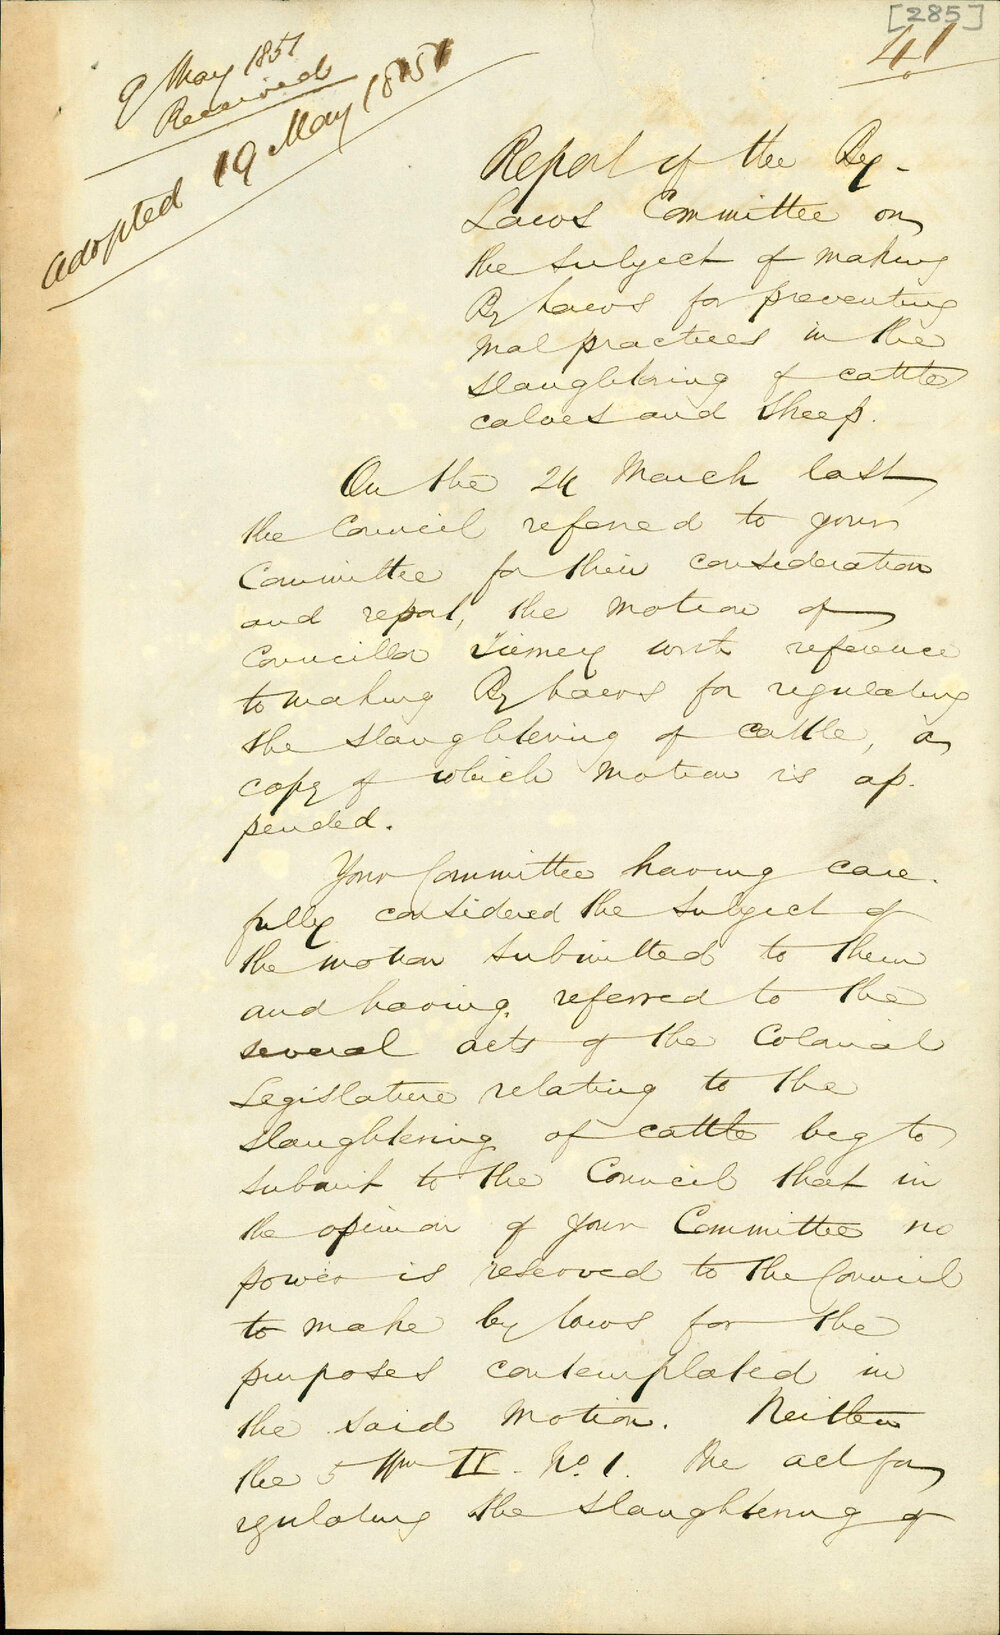 [285]
41
9 May 1851
Received
Adopted 19 May 1851
Report of the By-
Laws Committee on
the subject of making
By Laws for preventing
Mal practices in the
Slaughtering of cattle
calves and sheep.
On the 24 March last
the Council referred to your
Committee for their consideration
and report, the motion of
Councillor Tierney with reference
to making By Laws for regulating
the slaughtering of cattle, a
copy of which motion is ap-
pended.
Your Committee having care-
fully considered the subject of
the motion submitted to them
and having referred to the
several acts of the Colonial
Legislature relating to the
slaughtering of cattle beg to
submit to the Council that in
the opinion of your Committee no
power is reserved to the Council
to make by laws for the
purposes contemplated in
the said motion. Neither
the 5 Wm IV. No. 1. the act for
regulating the slaughtering of